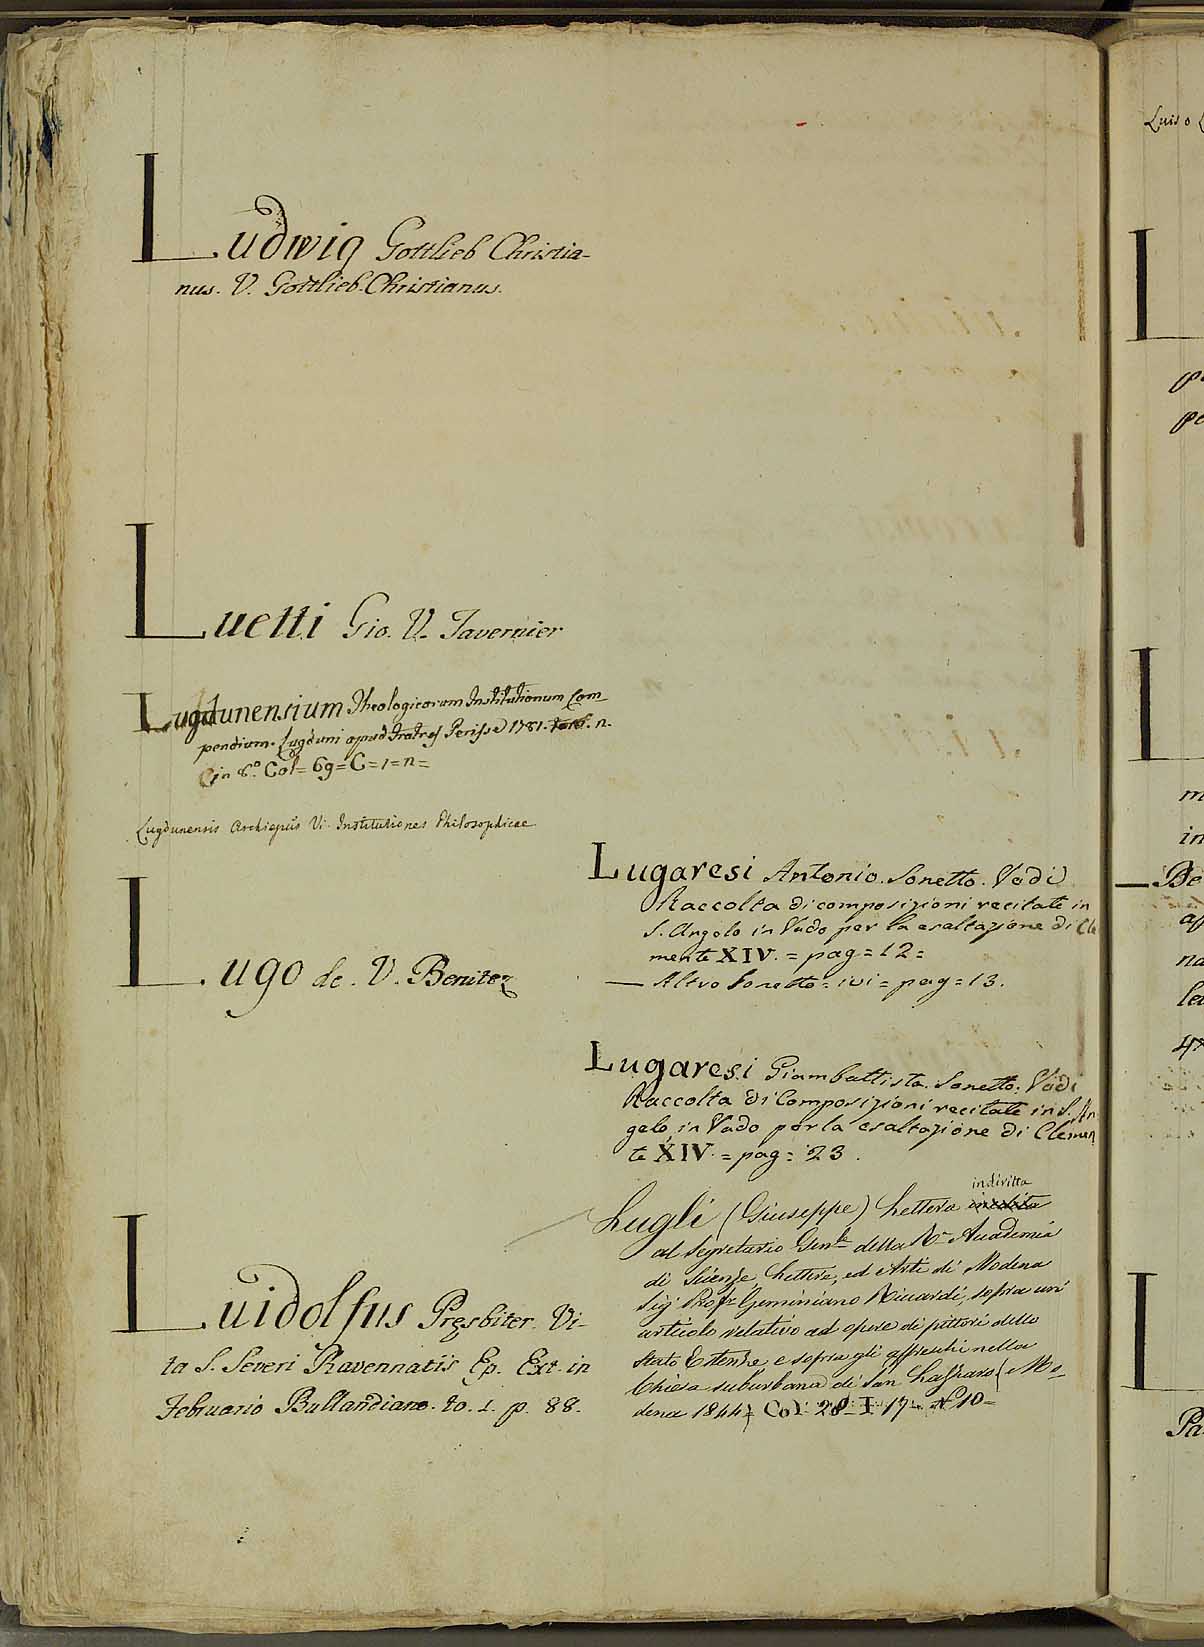 Ludwig Gottlieb Christia-
nus. V. Gottlieb. Christianus.
Luetti Gio. V. Tavernier
Lugdunensium Theologicarum Institutionum Com-
pendium. Lugduni apud Fratres Perisse 1781. n.
in 8.º Col= 69=C=1=n=
Lugdunensis Archiepiis Vi. Institutiones Philosophicae
Lugo de. V. Benitez
Luidolfus Presbiter. Vi-
ta S. Severi Ravennatis Ep. Ext. in
Februario Bullandiano. to. 1. p. 88.
Lugaresi Antonio. Sonetto. Vedi
Raccolta di composizioni recitate in
S. Angelo in Vado per la esaltazione di Cle
mente XIV. = pag = 12 =
— Altro Sonetto = ivi = pag = 13.
Lugaresi Giambattista. Sonetto. Vedi
Raccolta di Composizioni recitate in S. An
gelo in Vado per la esaltazione di Clemen
te XIV. = pag = 23.
indiritta
Lugli (Giuseppe) Lettera inedita
al Segretario Genle della R. Accademia
di Scienze, Lettere, ed Arti di Modena
Sig Profr Geminiano Riccardi, sopra un
articolo relativo ad opere di pittori dello
Stato Estense e sopra gli affreschi nella
Chiesa suburbana di San Lazzaro (Mo-
dena 1844) Col. 28-I-17- N 10-
Luis o
L
L
m
in
— Be
na
L
Pa